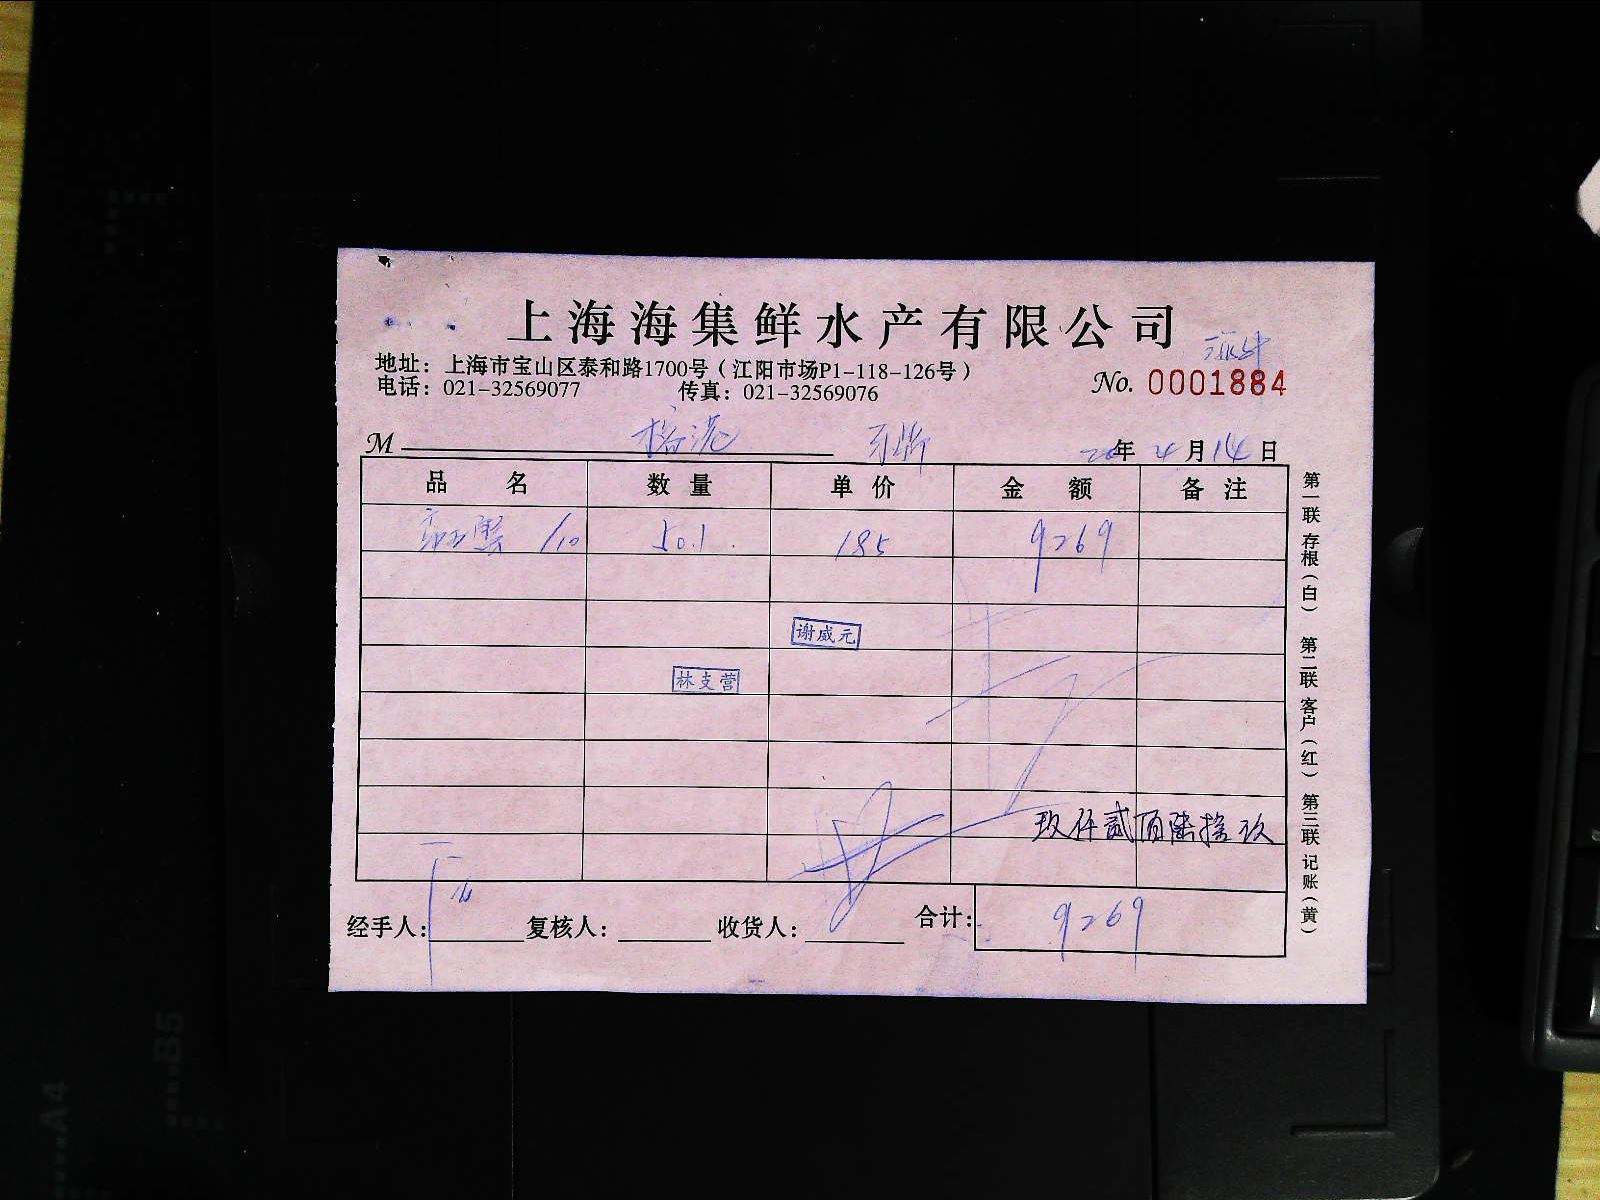 上海海集鲜水产有限公司
地址：上海市宝山区泰和路1700号（江阳市场P1-118-126号）
电话：021-32569077 传真：021-32569076
No. 0001884
M 榕港 20年4月14日
品名 数量 单价 金额 备注
/10 50.1 185 9269
谢威元
林支营
玖仟贰百陆拾玖
经手人： 复核人： 收货人： 合计：9269
第一联 存根（白） 第二联 客户（红） 第三联 记账（黄）
B5
A4